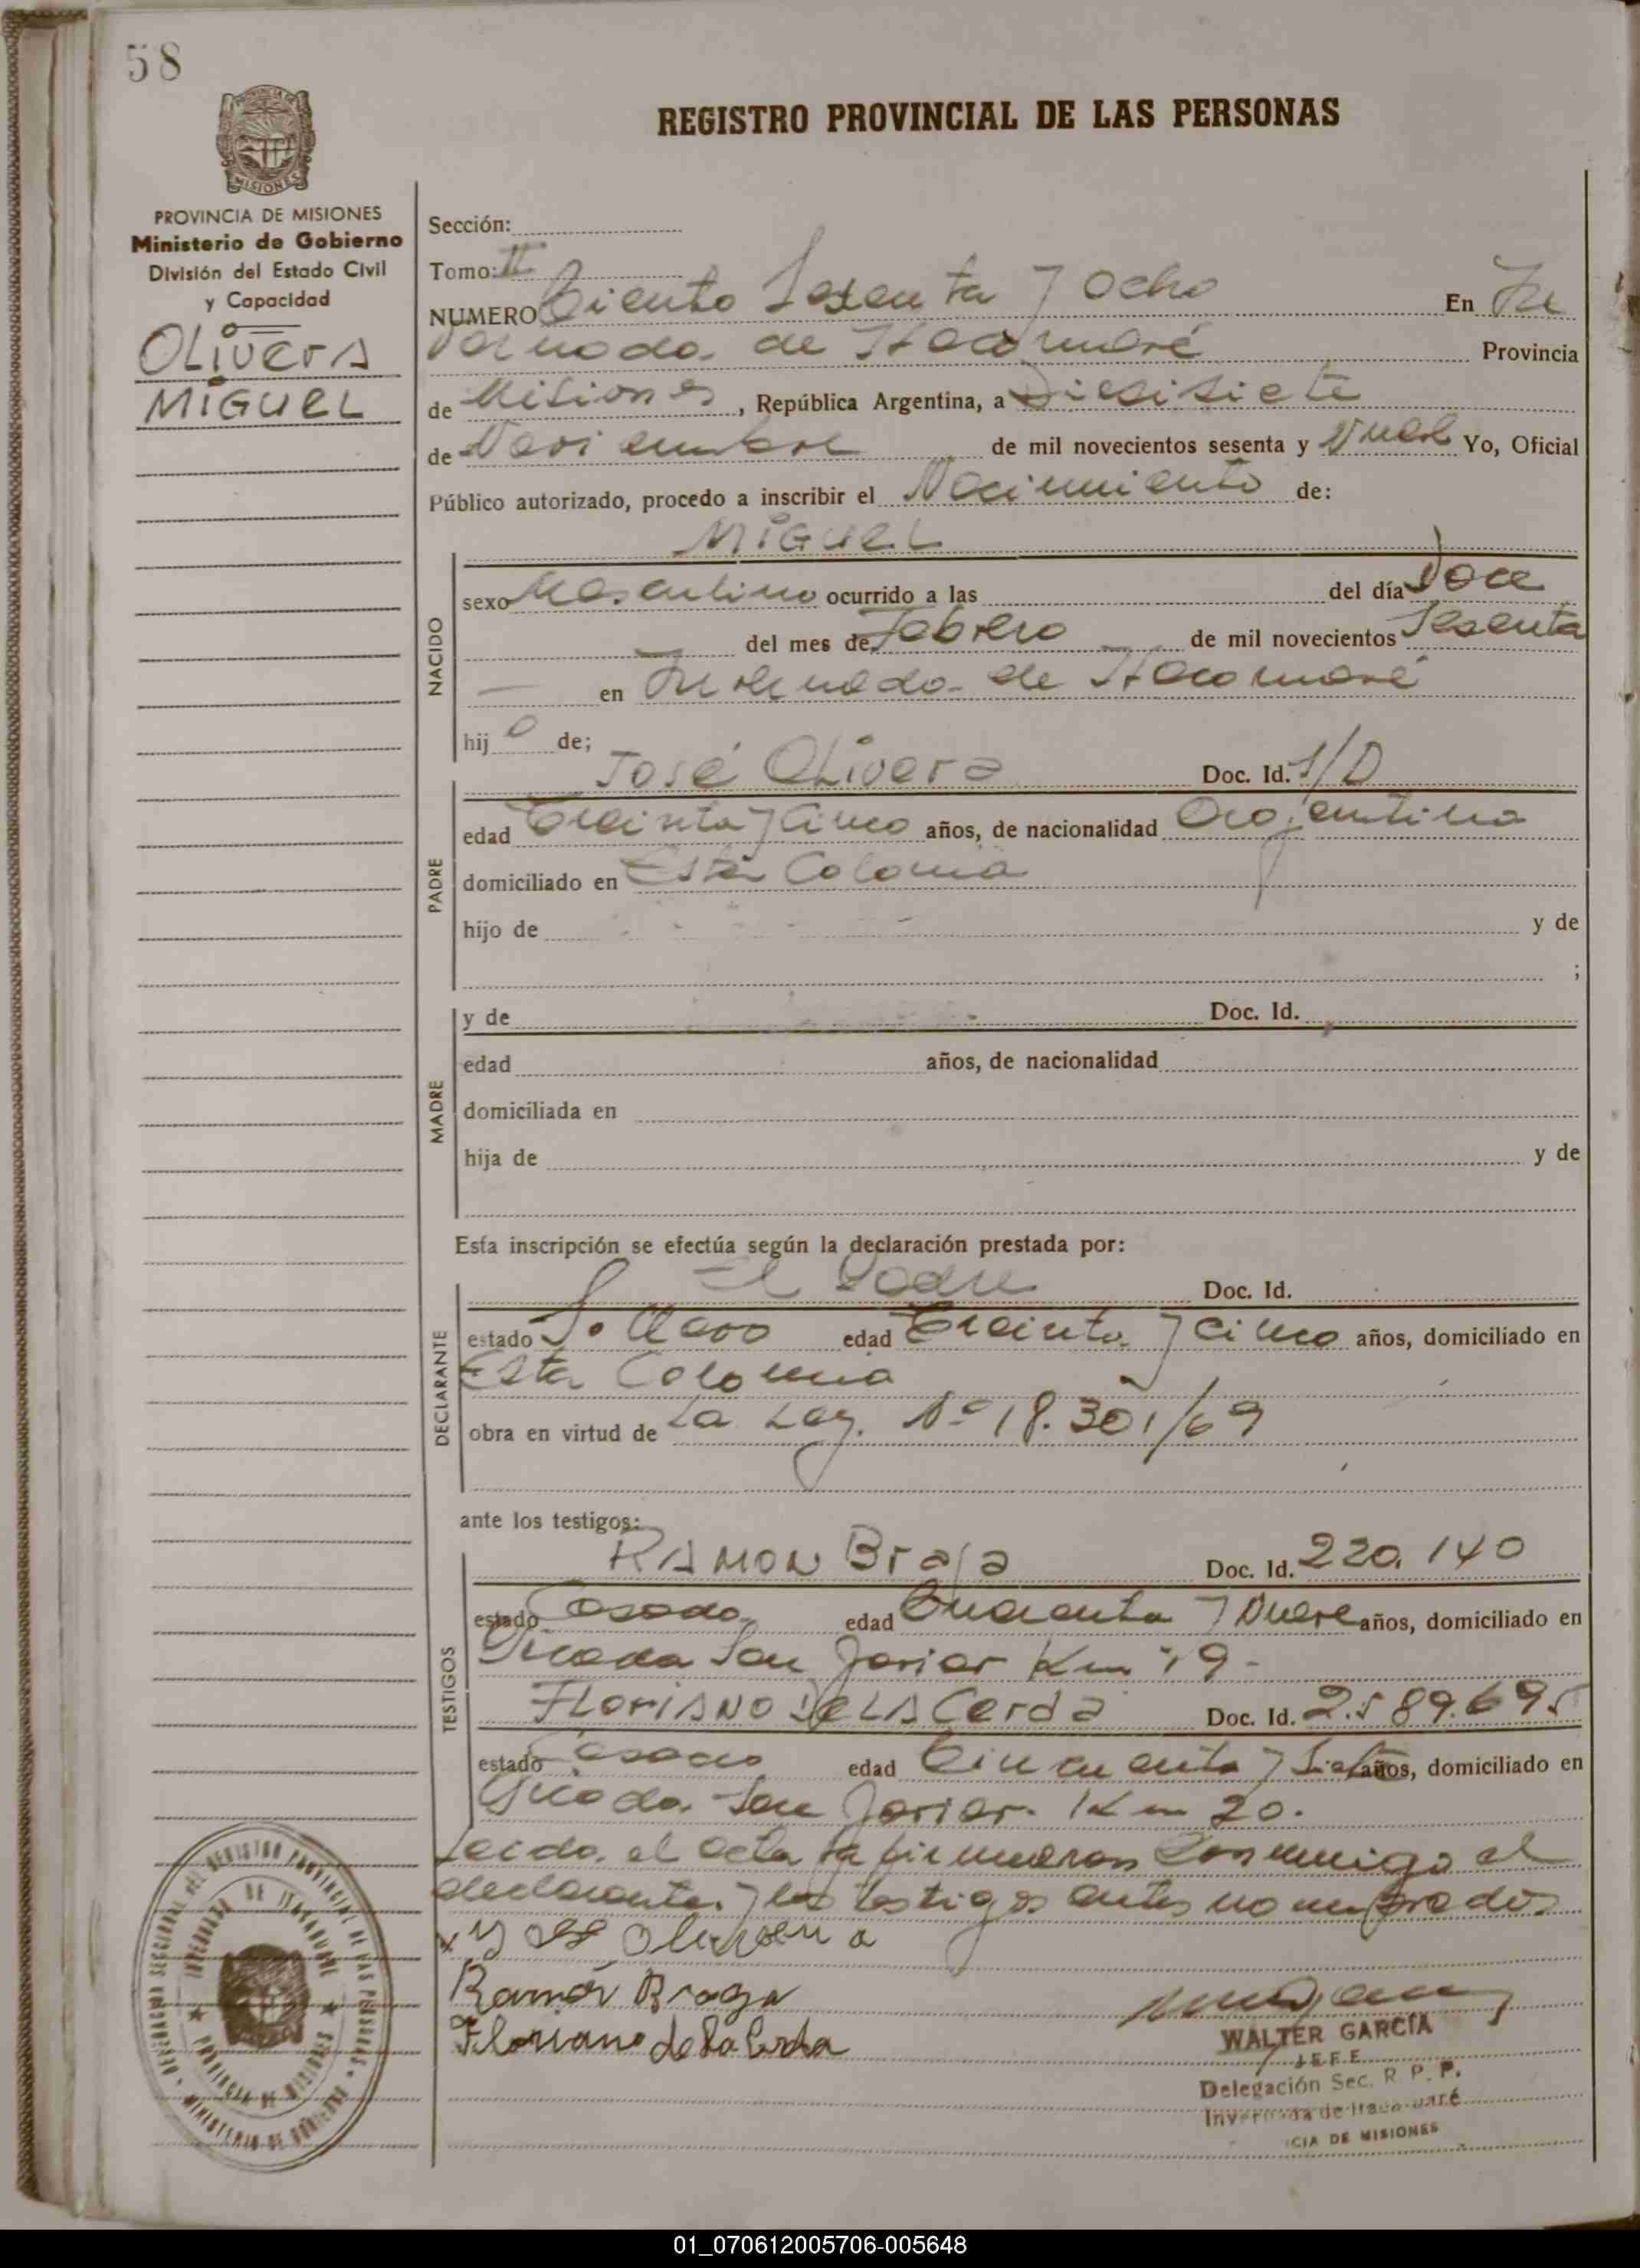 58
REGISTRO PROVINCIAL DE LAS PERSONAS
PROVINCIA DE MISIONES
Ministerio de Gobierno
División del Estado Civil
y Capacidad
OLIVERA
MIGUEL
Sección:
Tomo: II
NUMERO Ciento Sesenta y Ocho En In
vernada de Itacaruaré Provincia
de Misiones, República Argentina, a Diesisiete
de Noviembre de mil novecientos sesenta y Nueve Yo, Oficial
Público autorizado, procedo a inscribir el Nacimiento de:
MIGUEL
NACIDO
sexo Masculino ocurrido a las del día Doce
del mes de Febrero de mil novecientos Sesenta
en Invernada de Itacaruaré
hij o de;
José Olivera Doc. Id. S/D
PADRE
edad Treinta y Cinco años, de nacionalidad Argentina
domiciliado en Esta Colonia
hijo de y de
;
MADRE
y de Doc. Id.
edad años, de nacionalidad
domiciliada en
hija de y de
Esta inscripción se efectúa según la declaración prestada por:
El Padre Doc. Id.
DECLARANTE
estado Soltero edad Treinta y Cinco años, domiciliado en
Esta Colonia
obra en virtud de La Ley. Nº 18.301/69
ante los testigos:
RAMON Braga Doc. Id. 220.140
TESTIGOS
estado Casado edad Cuarenta y Nueve años, domiciliado en
Picada San Javier Km 19-
FLORIANO De LA Cerda Doc. Id. 2.589.695
estado Casado edad Cincuenta y Siete años, domiciliado en
Picada San Javier. Km 20.
Leida el acta la firmaron conmigo el
declarante y los testigos antes nombrados
Olivera
Ramón Braga
Floriano de la Cerda
WALTER GARCÍA
JEFE
Delegación Sec. R. P. P.
Invernada de Itacaruaré
CIA DE MISIONES
DELEGACION SECCIONAL DEL REGISTRO PROVINCIAL DE LAS PERSONAS
INVERNADA DE ITACARUARE
PROVINCIA DE MISIONES
MINISTERIO DE GOBIERNO
01_070612005706-005648